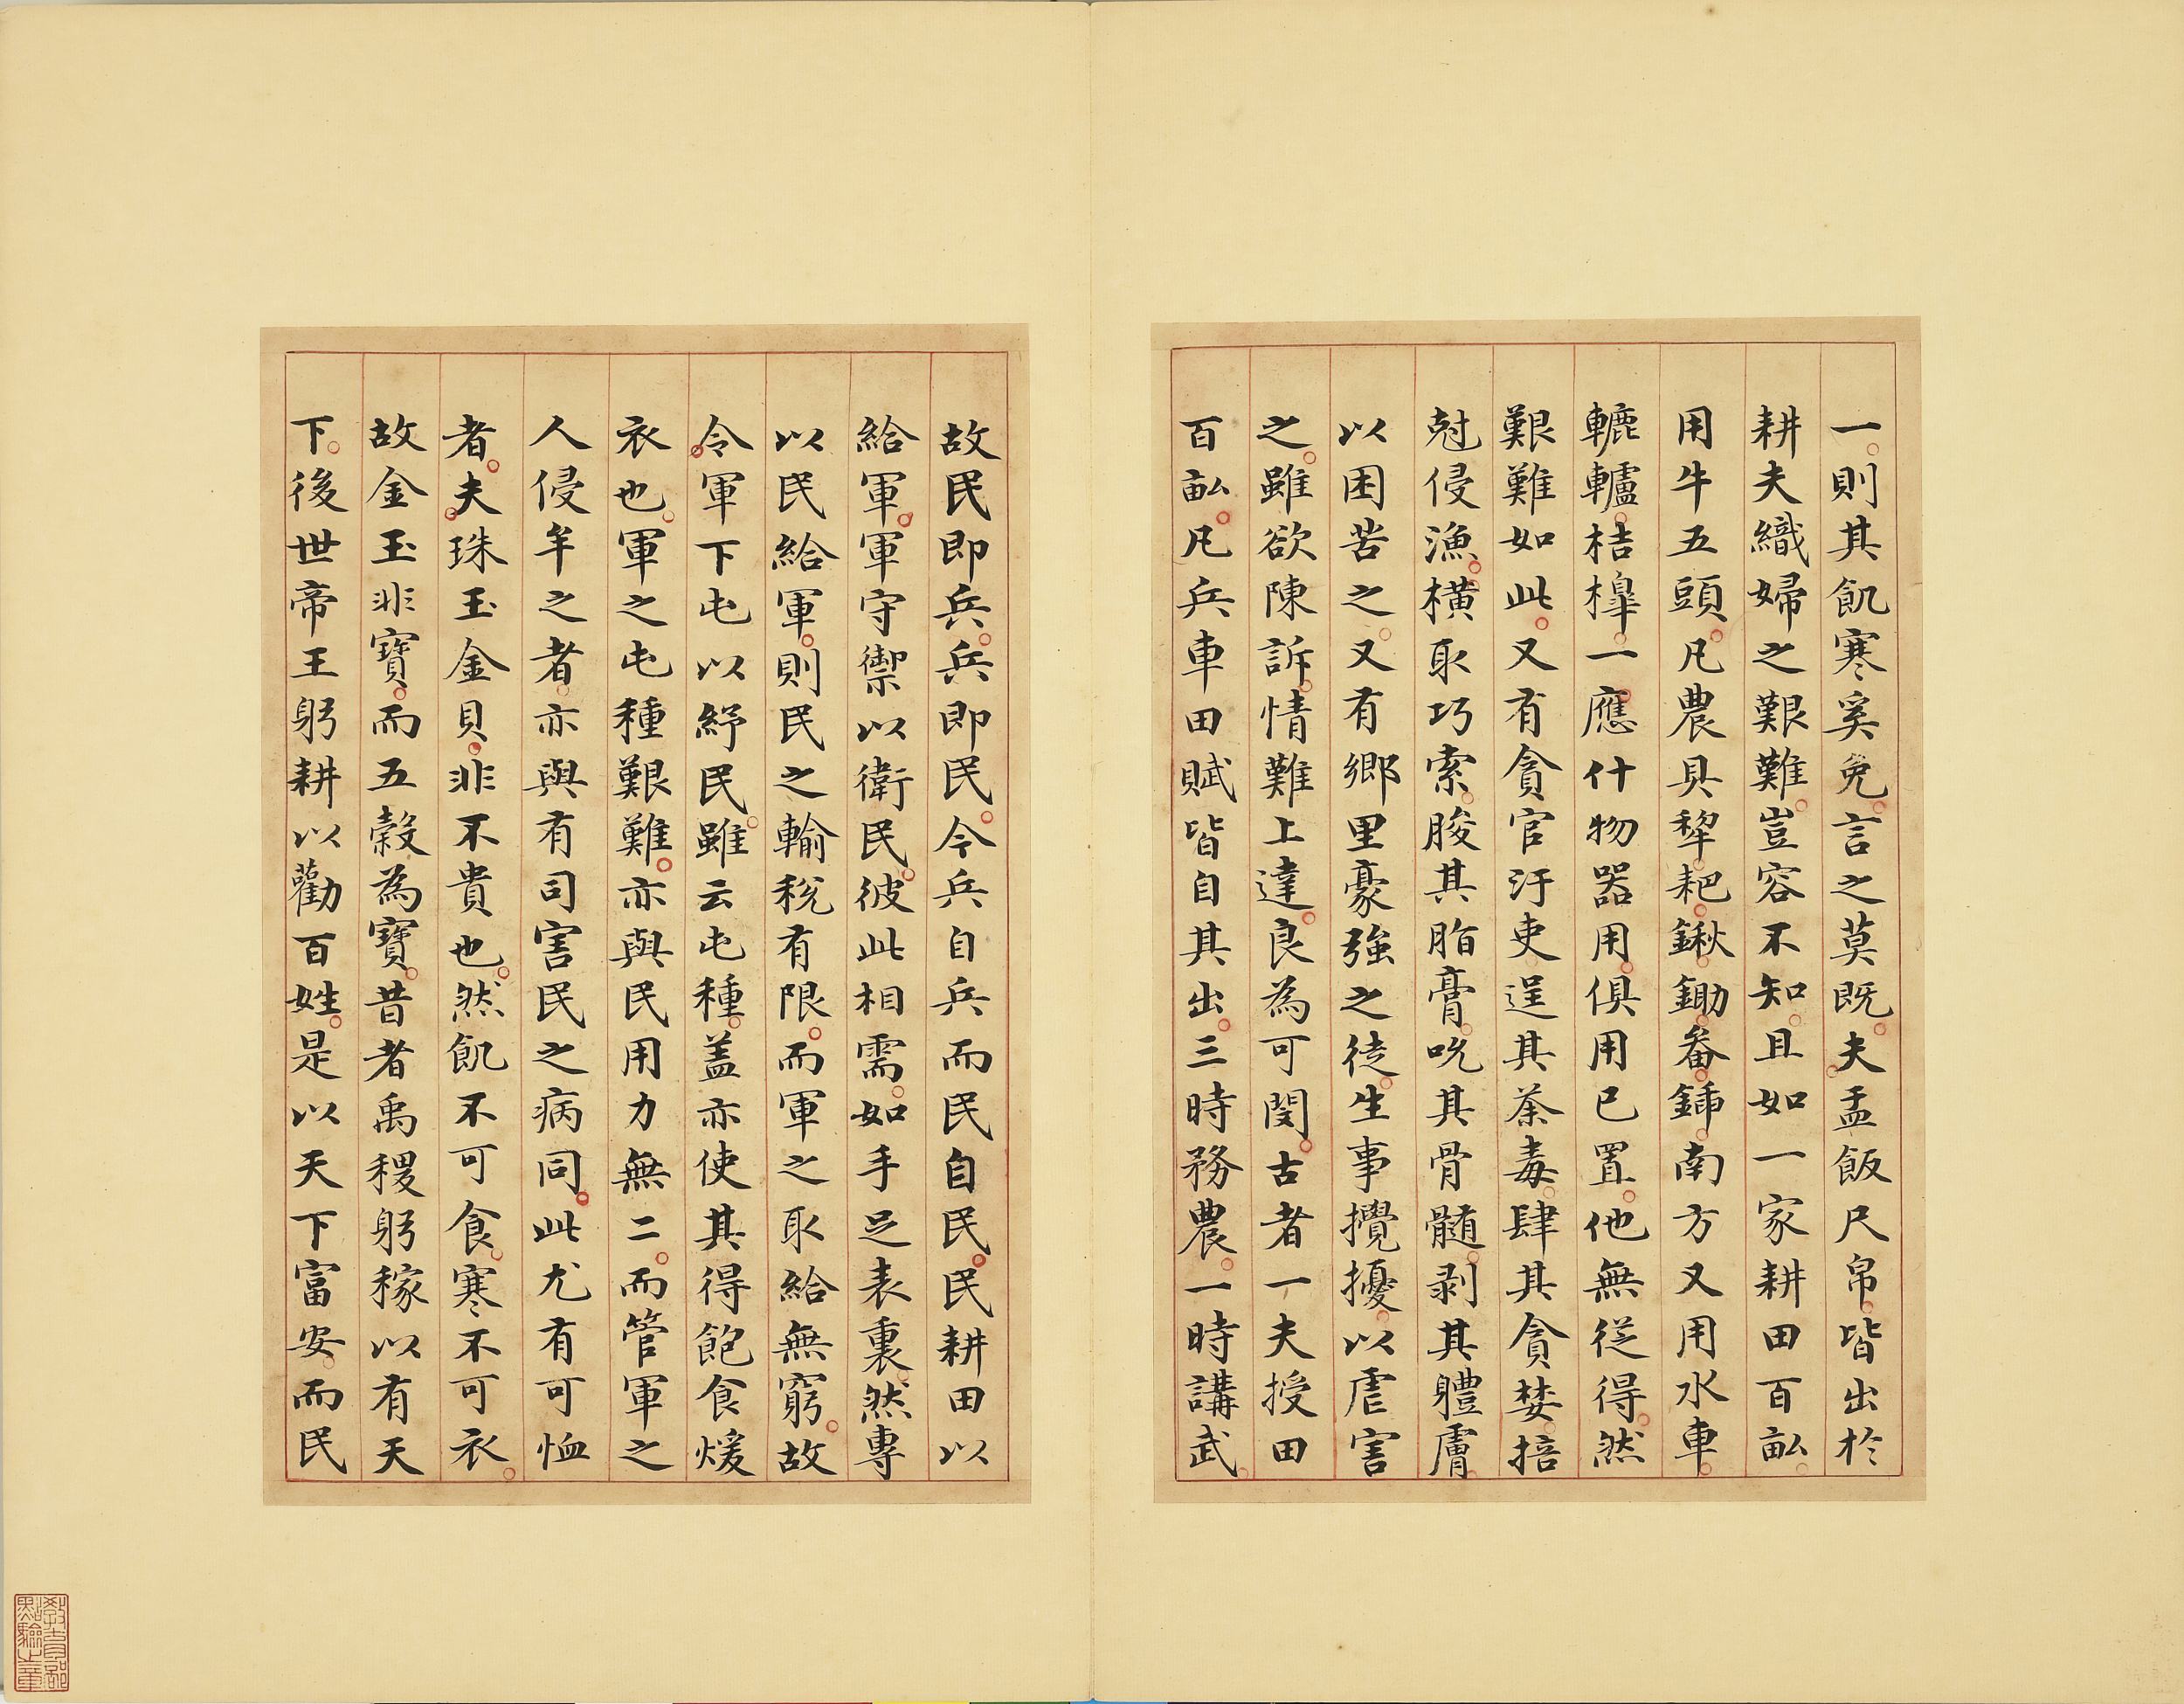 一則其飢寒奚免言之莫既夫盂飯尺帛皆出於
耕夫織婦之艱難豈容不知且如一家耕田百畝
用牛五頭凡農具犂耙鍬鋤畚鍤南方又用水車
轆轤桔槹一應什物器用俱用已置他無從得然
艱難如此又有貪官汙吏逞其荼毒肆其貪婪掊
尅侵漁橫取巧索朘其脂膏吮其骨髓剥其體膚
以困苦之又有鄉里豪強之徒生事攪擾以虐害
之雖欲陳訴情難上達良為可閔古者一夫授田
百畝凡兵車田賦皆自其出三時務農一時講武
故民即兵兵即民今兵自兵而民自民民耕田以
給軍軍守禦以衛民彼此相需如手足表裏然專
以民給軍則民之輸稅有限而軍之取給無窮故
令軍下屯以紓民雖云屯種盖亦使其得飽食煖
衣也軍之屯種艱難亦與民用力無二而管軍之
人侵牟之者亦與有司害民之病同此尤有可恤
者夫珠玉金貝非不貴也然飢不可食寒不可衣
故金玉非寶而五穀為寶昔者禹稷躬稼以有天
下後世帝王躬耕以勸百姓是以天下富安而民
教育部
點驗之章